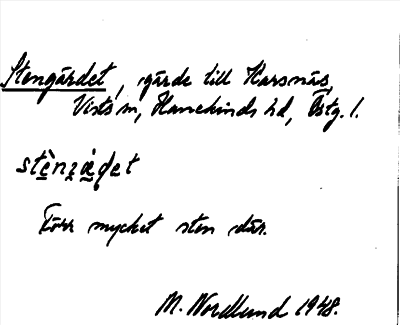 Stengärdet, gärde till Karsnäs,
Vists sn, Hanekinds hd, Östg. l.
stènʒædet
Förr mycket sten där.
M. Nordlund 1948.